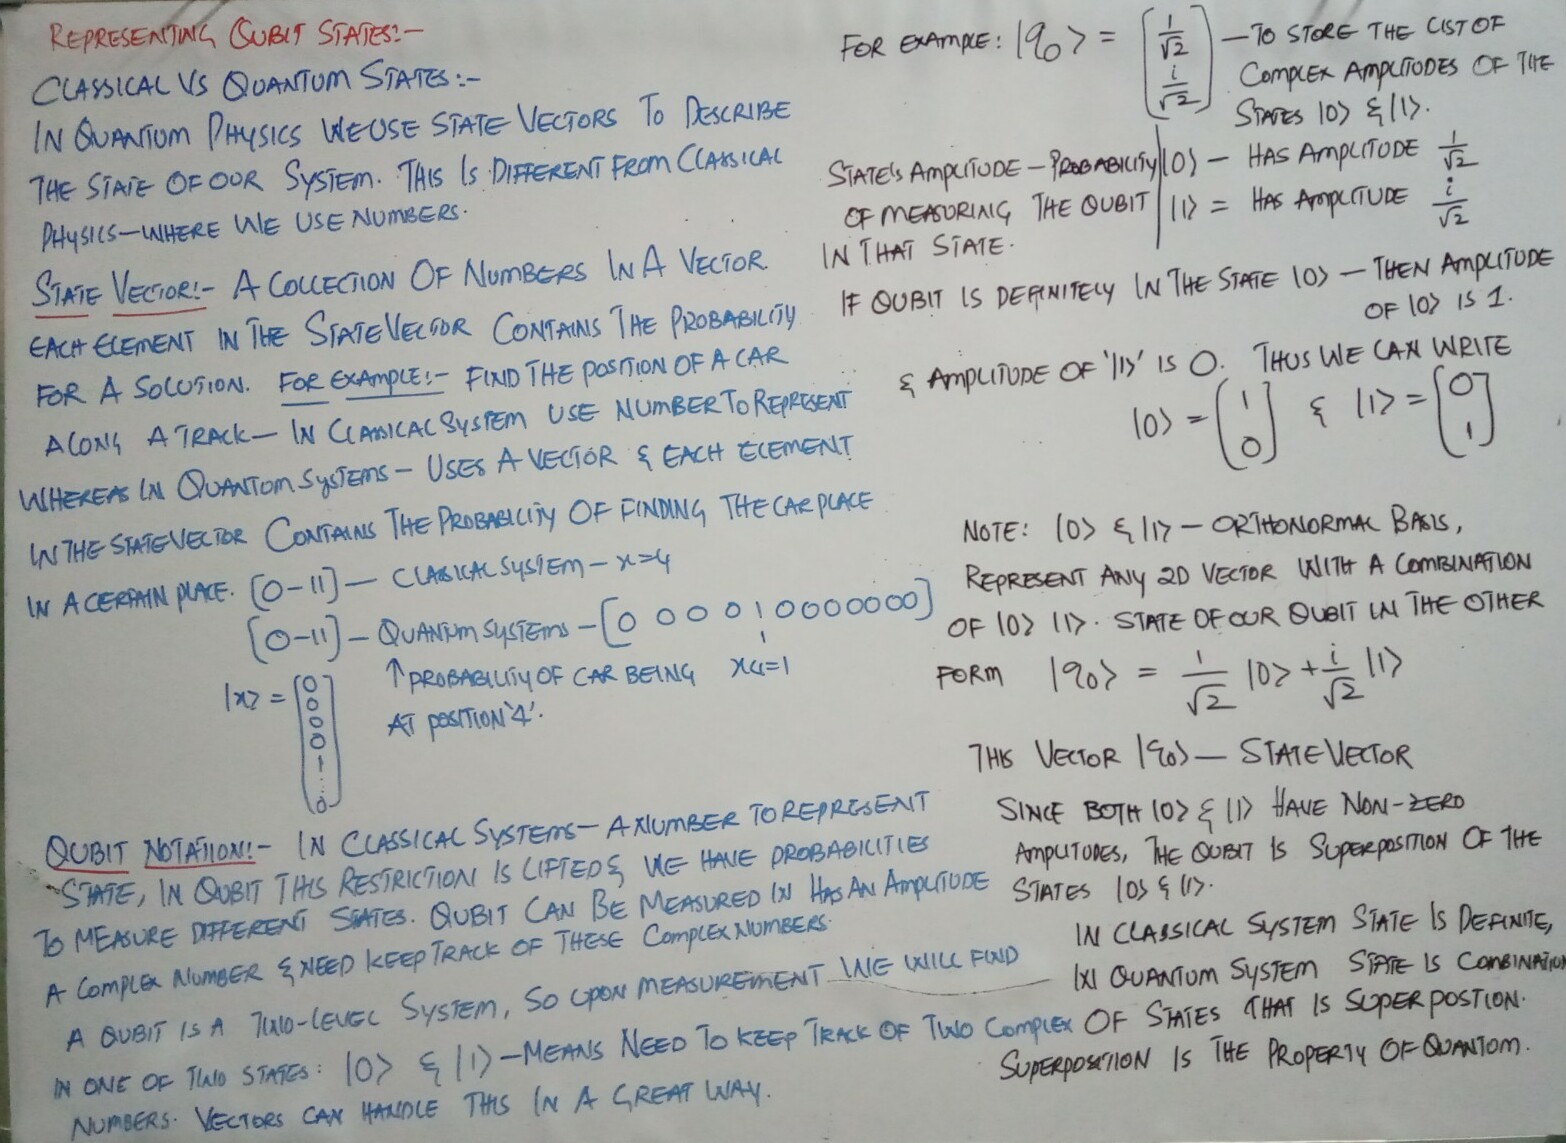 REPRESENTING QUBIT STATES:-
CLASSICAL VS QUANTUM STATES:-
IN QUANTUM PHYSICS WE USE STATE VECTORS TO DESCRIBE
THE STATE OF OUR SYSTEM. THIS IS DIFFERENT FROM CLASSICAL
PHYSICS-WHERE WE USE NUMBERS.
STATE VECTOR:- A COLLECTION OF NUMBERS IN A VECTOR.
EACH ELEMENT IN THE STATEVECTOR CONTAINS THE PROBABILITY
FOR A SOLUTION. FOR EXAMPLE:- FIND THE POSITION OF A CAR
ALONG A TRACK- IN CLASSICAL SYSTEM USE NUMBER TO REPRESENT
WHEREAS IN QUANTUM SYSTEMS- USES A VECTOR & EACH ELEMENT
IN THE STATEVECTOR CONTAINS THE PROBABILITY OF FINDING THE CAR PLACE
IN A CERTAIN PLACE. [0-11] - CLASSICAL SYSTEM - x=4
[0-11] - QUANTUM SYSTEMS - [0 0 0 0 1 0 0 0 0 0 0 0]
↑ PROBABILITY OF CAR BEING x4=1
AT POSITION '4'.
|x> = [0
0
0
0
1
⋮
0]
QUBIT NOTATION:- IN CLASSICAL SYSTEMS- A NUMBER TO REPRESENT
STATE, IN QUBIT THIS RESTRICTION IS LIFTED & WE HAVE PROBABILITIES
TO MEASURE DIFFERENT STATES. QUBIT CAN BE MEASURED IN HAS AN AMPLITUDE
A COMPLEX NUMBER & NEED KEEP TRACK OF THESE COMPLEX NUMBERS.
A QUBIT IS A TWO-LEVEL SYSTEM, SO UPON MEASUREMENT WE WILL FIND
IN ONE OF TWO STATES: |0> & |1> - MEANS NEED TO KEEP TRACK OF TWO COMPLEX
NUMBERS. VECTORS CAN HANDLE THIS IN A GREAT WAY.
FOR EXAMPLE: |q0> = [1/√2
i/√2] - TO STORE THE LIST OF
COMPLEX AMPLITUDES OF THE
STATES |0> & |1>.
STATE'S AMPLITUDE - PROBABILITY
OF MEASURING THE QUBIT
IN THAT STATE.
|0> - HAS AMPLITUDE 1/√2
|1> = HAS AMPLITUDE i/√2
IF QUBIT IS DEFINITELY IN THE STATE |0> - THEN AMPLITUDE
OF |0> IS 1.
& AMPLITUDE OF '|1>' IS 0. THUS WE CAN WRITE
|0> = [1
0] & |1> = [0
1]
NOTE: |0> & |1> - ORTHONORMAL BASIS,
REPRESENT ANY 2D VECTOR WITH A COMBINATION
OF |0> |1>. STATE OF OUR QUBIT IN THE OTHER
FORM |q0> = 1/√2 |0> + i/√2 |1>
THIS VECTOR |q0> - STATEVECTOR
SINCE BOTH |0> & |1> HAVE NON-ZERO
AMPLITUDES, THE QUBIT IS SUPERPOSITION OF THE
STATES |0> & |1>.
IN CLASSICAL SYSTEM STATE IS DEFINITE,
IN QUANTUM SYSTEM STATE IS COMBINATION
OF STATES THAT IS SUPERPOSTION.
SUPERPOSITION IS THE PROPERTY OF QUANTOM.